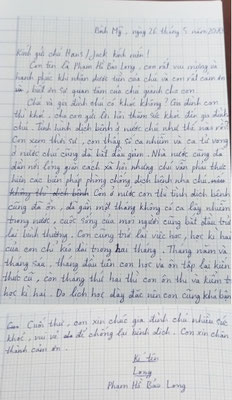 Bình Mỹ, ngày 26 tháng 5 năm
Kính gửi chú Hans / Jack kính mến!
Con tên là Phạm Hồ Bảo Long, con rất vui mừng và
hạnh phúc khi nhận được tin của chú và con rất cảm ơn
và biết ơn sự quan tâm của chú giành cho con.
Chú và gia đình chú có khoẻ không? Gia đình con
thì khoẻ, cho con gửi lời hỏi thăm sức khoẻ đến gia đình
chú. Tình hình dịch bệnh ở nước chú như thế nào rồi?
Con xem thời sự, con thấy số ca nhiễm và ca tử vong
ở nước chú cũng đã bắt đầu giảm. Nhà nước cũng đã
dần nới lỏng giãn cách xã hội nhưng chú vẫn phải thực
hiện các biện pháp phòng chống dịch bệnh nha chú
không thì dịch bệnh Còn ở nước con thì tình dịch bệnh
cũng đã ổn, đã gần một tháng không có ca lây nhiễm
trong nước, cuộc sống của mọi người cũng bắt đầu trở
lại bình thường. Con cũng trở lại việc học, học kì hai
của con chỉ kéo dài trong hai tháng. Tháng năm và
tháng sáu. Tháng đầu tiên con học và ôn tập lại kiến
thức cũ, còn tháng thứ hai thì con ôn thi và kiểm tra
học kì hai. Do lịch học dày đặc nên con cũng khá bận.
Cuối thư, con xin chúc gia đình chú nhiều sức
khoẻ, vui vẻ để chống lại bệnh dịch. Con xin chân
thành cảm ơn.
Kí tên
Long
Phạm Hồ Bảo Long